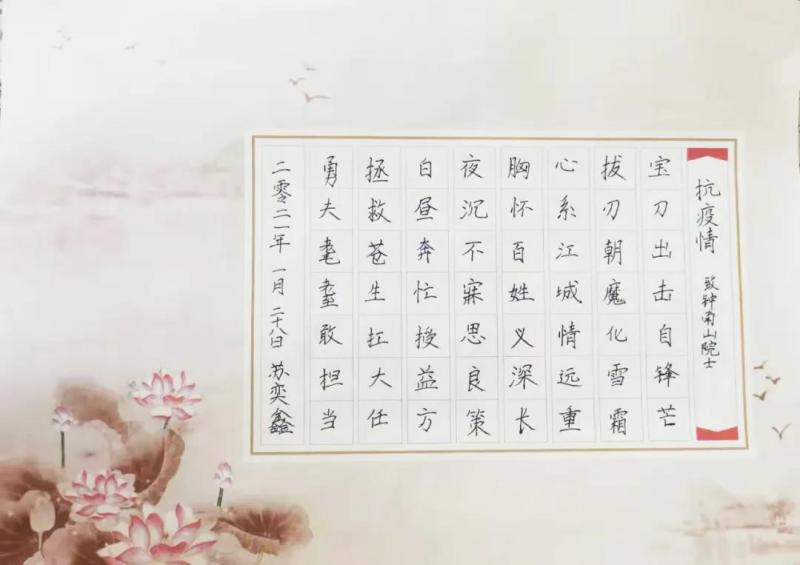 抗疫情 致钟南山院士
宝刀出击自锋芒
拔刃朝魔化雪霜
心系江城情远重
胸怀百姓义深长
夜沉不寐思良策
白昼奔忙授益方
拯救苍生扛大任
勇夫耄耋敢担当
二零二一年一月二十八日 苏奕鑫